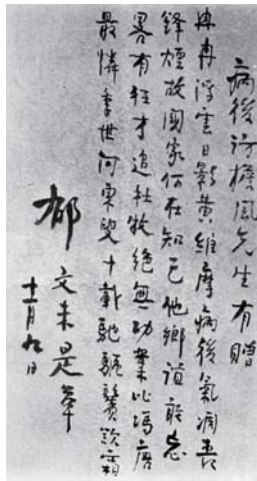 病後訪擔風先生有贈
冉冉浮雲日影黄維摩病後氣凋喪
鋒煙故國家何在知己他鄉誼敢忘
畧有狂才追杜牧絕無功業比馮唐
最憐季世河東叟十載馳驅鬢欲霜
郁文未是草
月九日